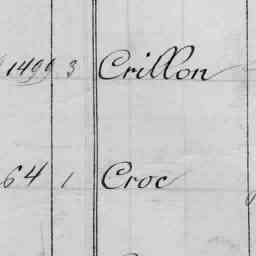 1499 3 Crillon
64 1 Croc